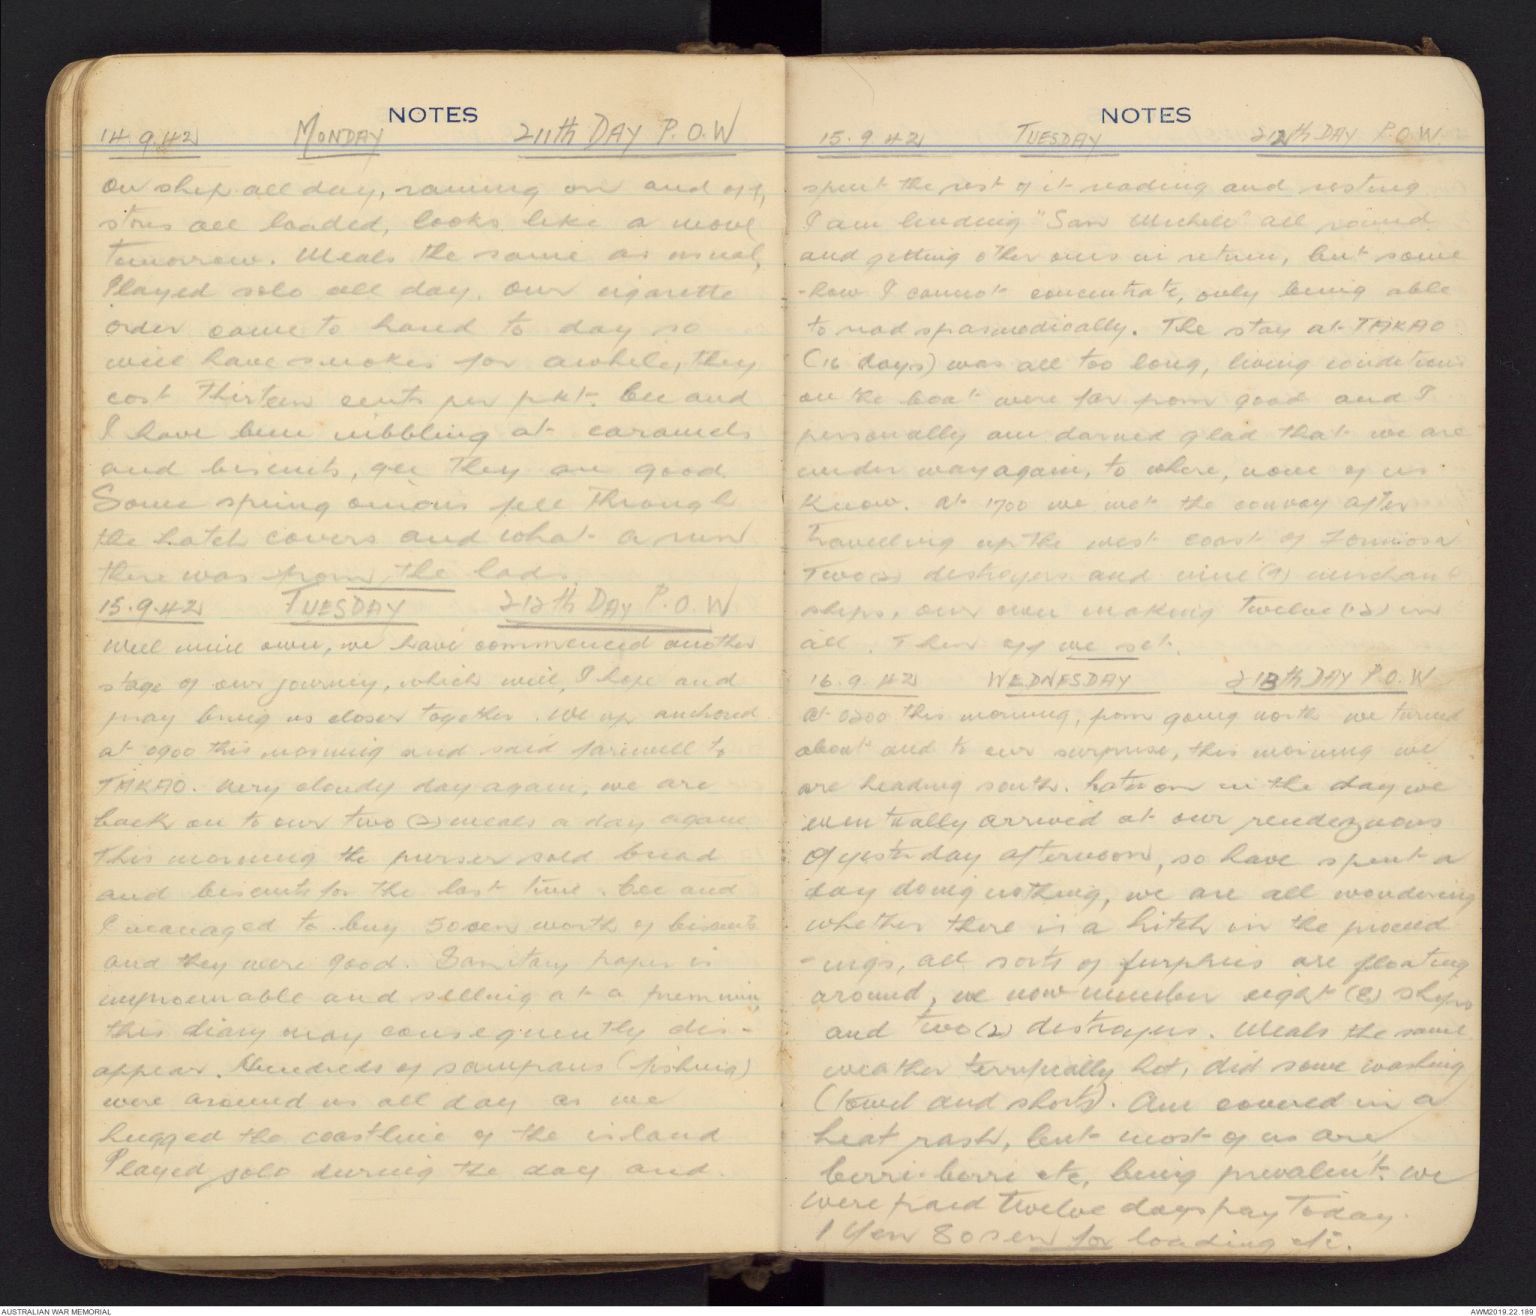 NOTES
14.9.42 MONDAY 211th DAY P.O.W
On ship all day, raining on and off,
stores all loaded, looks like a move
tomorrow. Meals the same as usual,
Played solo all day. Our cigarette
order came to hand to day so
will have smokes for awhile, they
cost thirteen cents per pkt. Cec and
I have been nibbling at caramels
and biscuits, gee they are good.
Some spring onions fell through
the hatch covers and what a run
there was from the lads.
15.9.42 TUESDAY 212th DAY P.O.W
Well mine own, we have commenced another
stage of our journey, which will, I hope and
pray bring us closer together. We up anchored
at 0900 this morning and said farewell to
TAKAO. Very cloudy day again, we are
back on to our two (2) meals a day again.
This morning the purser sold bread
and biscuits for the last time. Cec and
I managed to buy 50 sen worth of biscuits
and they were good. Sanitary paper is
unprocurable and selling at a premium,
this diary may consequently dis-
appear. Hundreds of sampans (fishing)
were around us all day as we
hugged the coastline of the island
Played solo during the day and
NOTES
15.9.42 TUESDAY 212th DAY P.O.W.
spent the rest of it reading and resting
I am lending "San Michele" all round
and getting other ones in return, but some
-how I cannot concentrate, only being able
to read spasmodically. The stay at TAKAO
(16 days) was all too long, living conditions
on the boat were far from good and I
personally am darned glad that we are
under way again, to where, none of us
know. At 1700 we met the convoy after
travelling up the west coast of Formosa
Two (2) destroyers and nine (9) merchant
ships, our own making twelve (12) in
all. Then off we set.
16.9.42 WEDNESDAY 213th DAY P.O.W
At 0200 this morning, from going north we turned
about and to our surprise, this morning we
are heading south. Later on in the day we
eventually arrived at our rendezvous
of yesterday afternoon, so have spent a
day doing nothing, we are all wondering
whether there is a hitch in the proceed
-ings, all sorts of furphies are floating
around, we now number eight (8) ships
and two (2) destroyers. Meals the same
weather terrifically hot, did some washing
(towel and shorts). Am covered in a
heat rash, but most of us are,
berri-berri etc, being prevalent. We
were paid twelve days pay today.
1 Yen 80 sen for loading etc.
AUSTRALIAN WAR MEMORIAL
AWM2019.22.189